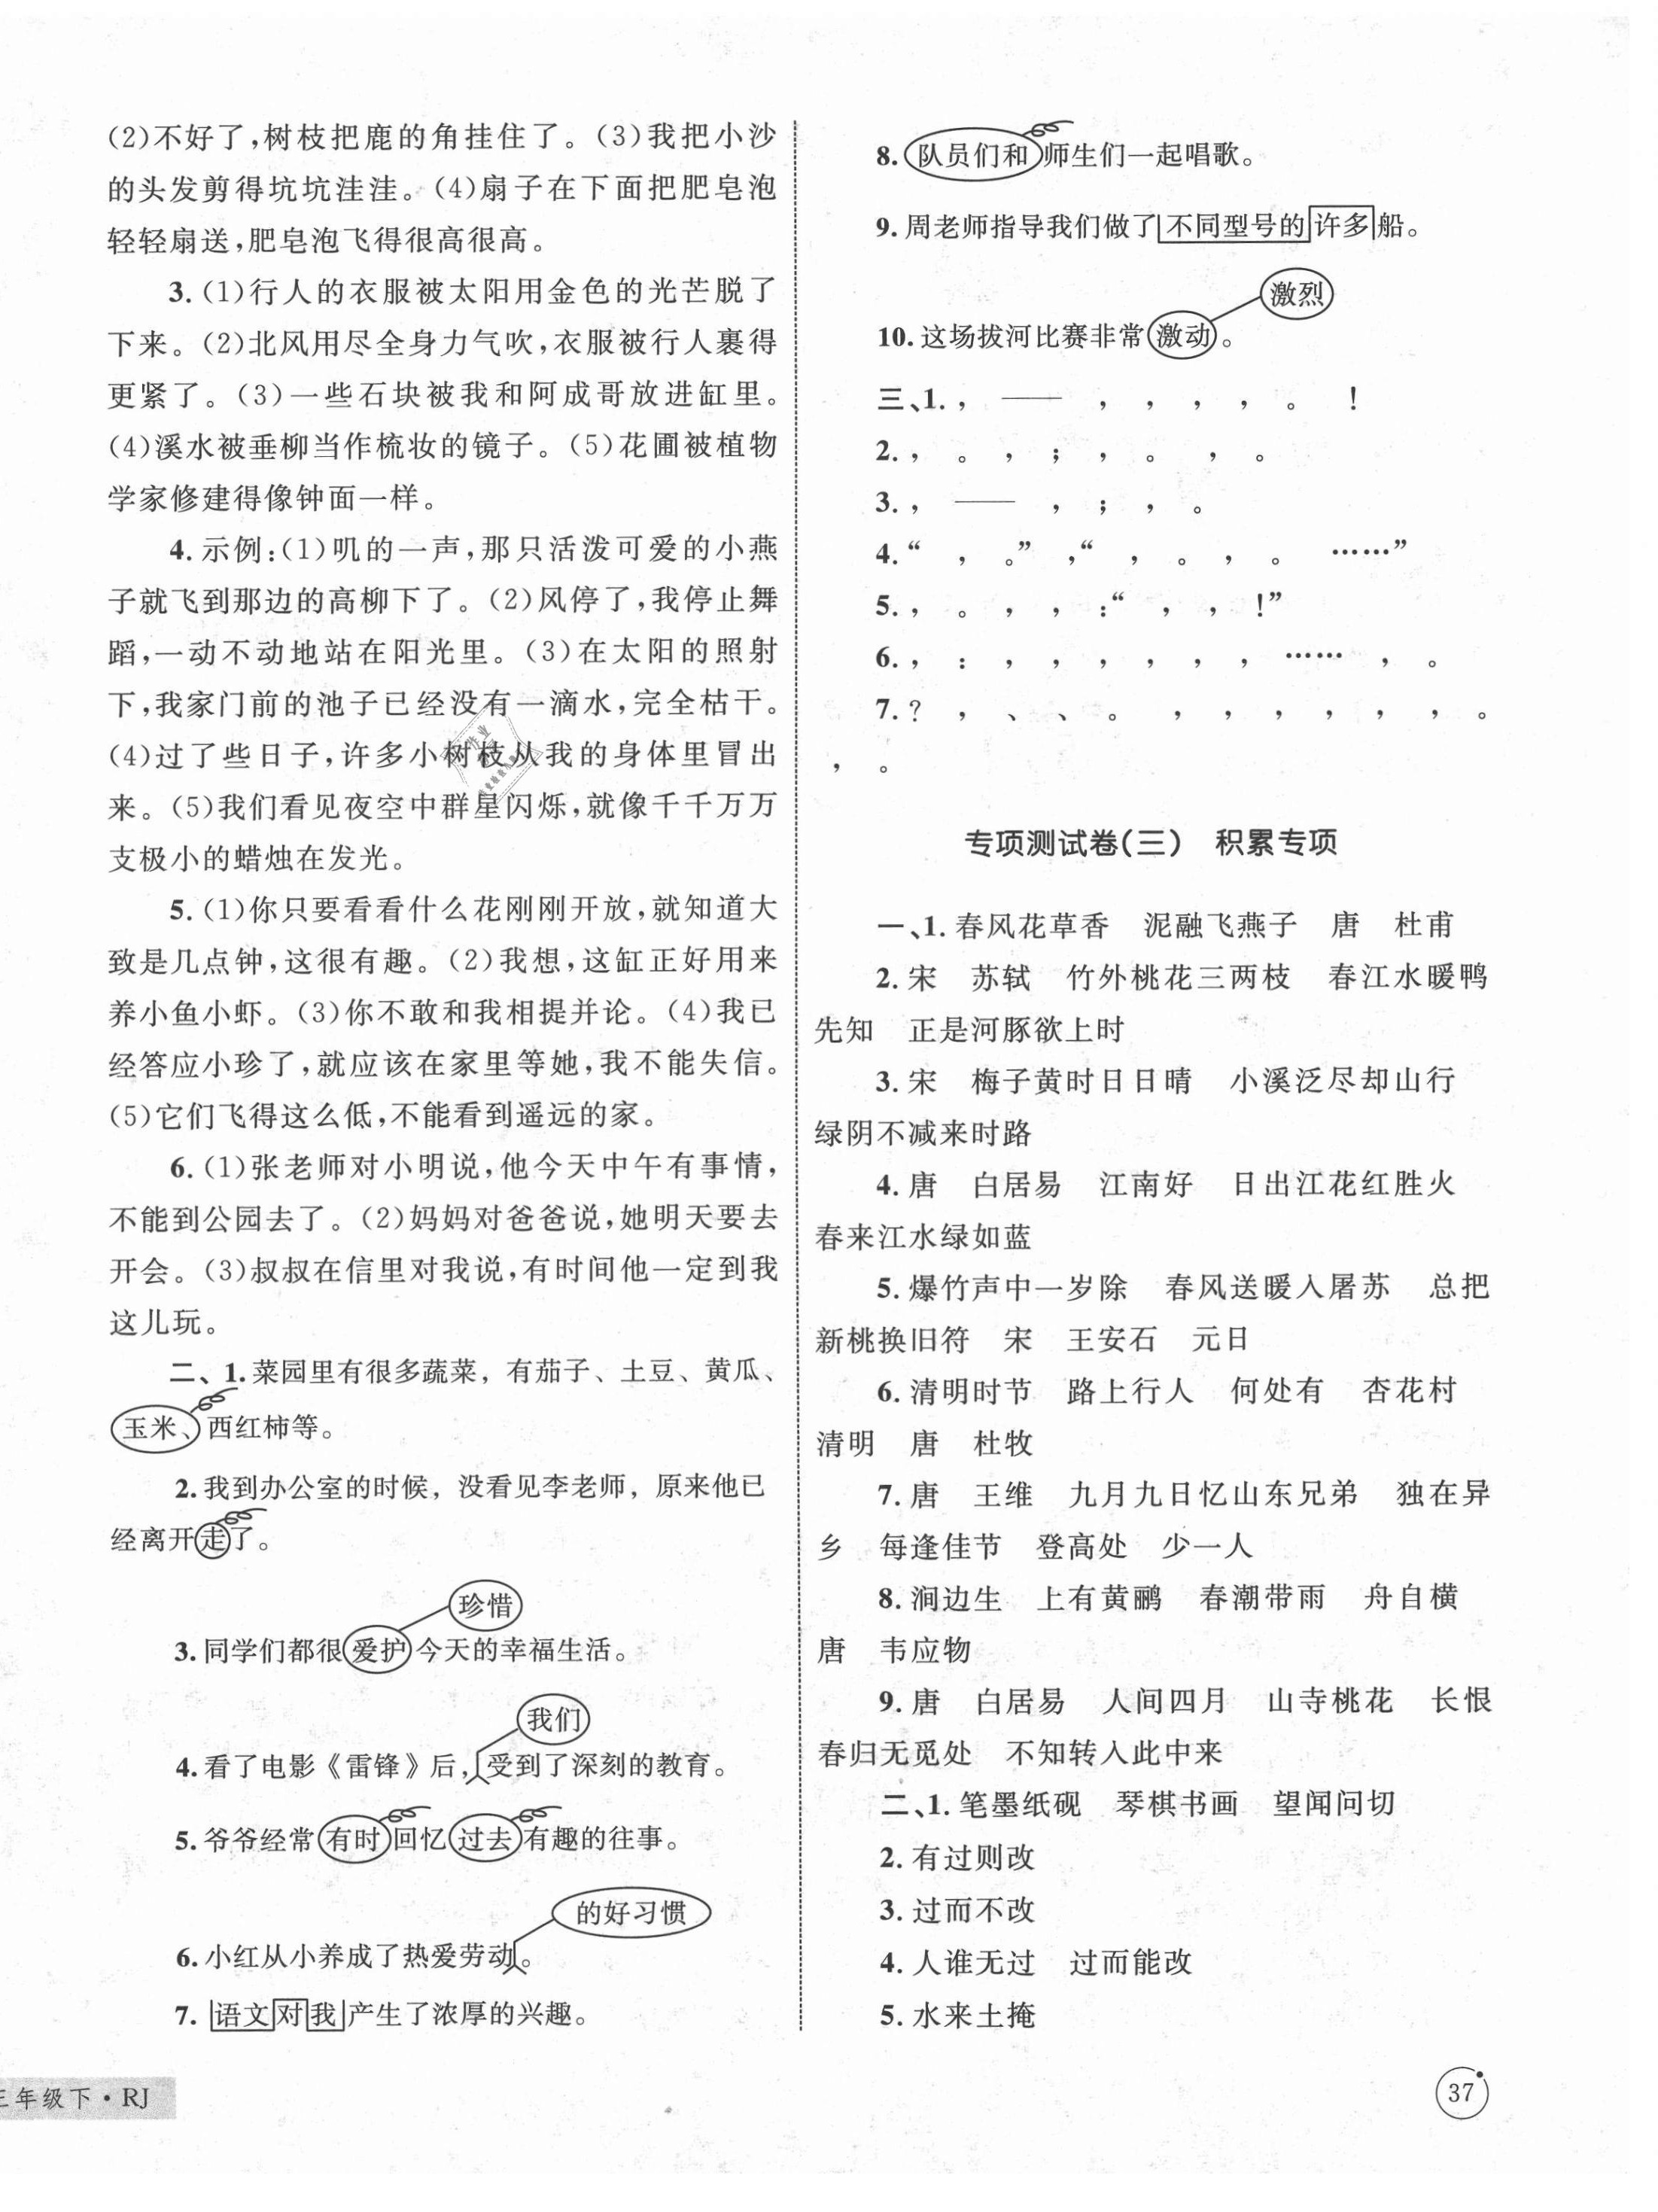 (2)不好了,树枝把鹿的角挂住了。(3)我把小沙
的头发剪得坑坑洼洼。(4)扇子在下面把肥皂泡
轻轻扇送,肥皂泡飞得很高很高。
3. (1)行人的衣服被太阳用金色的光芒脱了
下来。(2)北风用尽全身力气吹,衣服被行人裹得
更紧了。(3)一些石块被我和阿成哥放进缸里。
(4)溪水被垂柳当作梳妆的镜子。(5)花圃被植物
学家修建得像钟面一样。
4. 示例:(1)叽的一声,那只活泼可爱的小燕
子就飞到那边的高柳下了。(2)风停了,我停止舞
蹈,一动不动地站在阳光里。(3)在太阳的照射
下,我家门前的池子已经没有一滴水,完全枯干。
(4)过了些日子,许多小树枝从我的身体里冒出
来。(5)我们看见夜空中群星闪烁,就像千千万万
支极小的蜡烛在发光。
5. (1)你只要看看什么花刚刚开放,就知道大
致是几点钟,这很有趣。(2)我想,这缸正好用来
养小鱼小虾。(3)你不敢和我相提并论。(4)我已
经答应小珍了,就应该在家里等她,我不能失信。
(5)它们飞得这么低,不能看到遥远的家。
6. (1)张老师对小明说,他今天中午有事情,
不能到公园去了。(2)妈妈对爸爸说,她明天要去
开会。(3)叔叔在信里对我说,有时间他一定到我
这儿玩。
二、1. 菜园里有很多蔬菜，有茄子、土豆、黄瓜、
玉米、西红柿等。
2. 我到办公室的时候，没看见李老师，原来他已
经离开走了。
珍惜
3. 同学们都很爱护今天的幸福生活。
我们
4. 看了电影《雷锋》后,受到了深刻的教育。
5. 爷爷经常有时回忆过去有趣的往事。
的好习惯
6. 小红从小养成了热爱劳动。
7. 语文对我产生了浓厚的兴趣。
三年级下·RJ
8. 队员们和师生们一起唱歌。
9. 周老师指导我们做了不同型号的许多船。
激烈
10. 这场拔河比赛非常激动。
三、1. ， —— ， ， ， ， 。 ！
2. ， 。 ， ； ， 。 ， 。
3. ， —— ， ； ， 。
4. “ ， 。” ，“ ， 。 ， 。 ……”
5. ， 。 ， ， ：“ ， ， ！”
6. ， ： ， ， ， ， ， ， …… ， 。
7. ？ ， 、 、 。 ， ， ， ， ， ， 。
， 。
专项测试卷(三) 积累专项
一、1. 春风花草香 泥融飞燕子 唐 杜甫
2. 宋 苏轼 竹外桃花三两枝 春江水暖鸭
先知 正是河豚欲上时
3. 宋 梅子黄时日日晴 小溪泛尽却山行
绿阴不减来时路
4. 唐 白居易 江南好 日出江花红胜火
春来江水绿如蓝
5. 爆竹声中一岁除 春风送暖入屠苏 总把
新桃换旧符 宋 王安石 元日
6. 清明时节 路上行人 何处有 杏花村
清明 唐 杜牧
7. 唐 王维 九月九日忆山东兄弟 独在异
乡 每逢佳节 登高处 少一人
8. 涧边生 上有黄鹂 春潮带雨 舟自横
唐 韦应物
9. 唐 白居易 人间四月 山寺桃花 长恨
春归无觅处 不知转入此中来
二、1. 笔墨纸砚 琴棋书画 望闻问切
2. 有过则改
3. 过而不改
4. 人谁无过 过而能改
5. 水来土掩
37